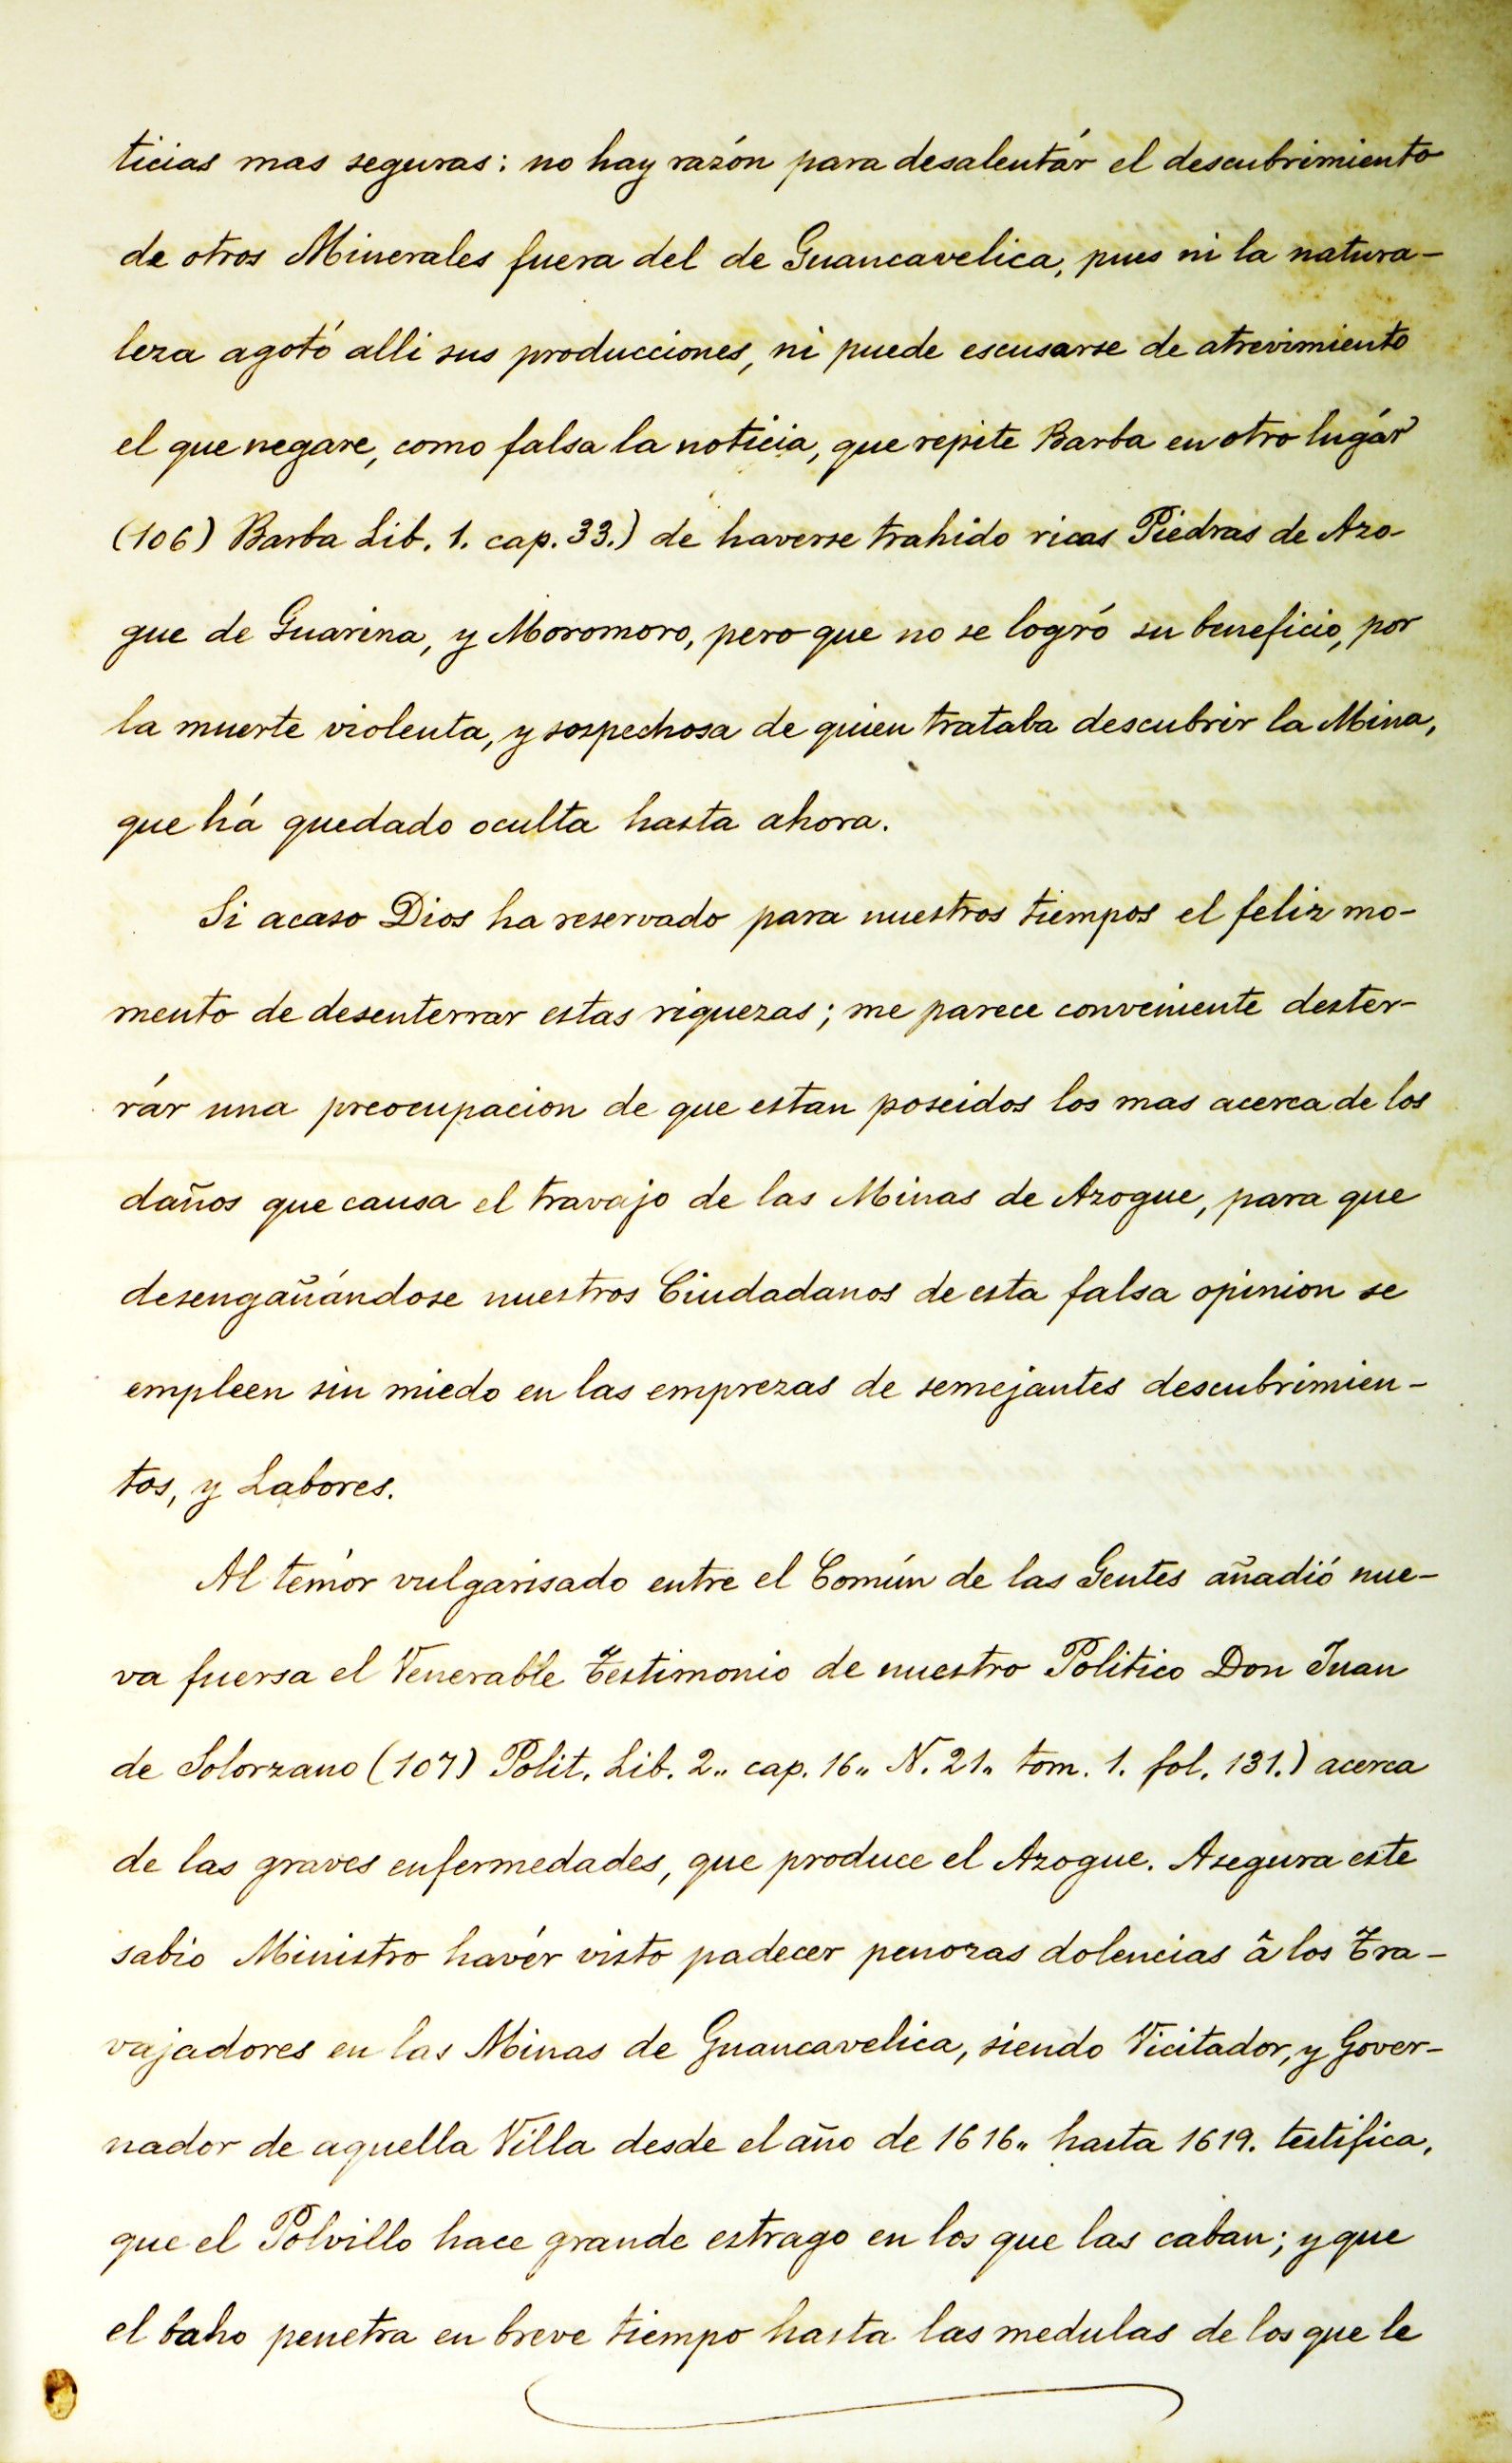 ticias mas seguras: no hay razón para desalentár el descubrimiento
de otros Minerales fuera del de Guancavelica, pues ni la natura-
leza agotó alli sus producciones, ni puede escusarse de atrevimiento
el que negare, como falsa la noticia, que repite Barba en otro lugár
(106) Barba Lib. 1. cap. 33.) de haverse trahido ricas Piedras de Azo-
gue de Guarina, y Moromoro, pero que no se logró su beneficio, por
la muerte violenta, y sospechosa de quien trataba descubrir la Mina,
que há quedado oculta hasta ahora.
Si acaso Dios ha reservado para nuestros tiempos el feliz mo-
mento de desenterrar estas riquezas; me parece conveniente dester-
rár una preocupacion de que estan poseidos los mas acerca de los
daños que causa el travajo de las Minas de Azogue, para que
desengañándose nuestros Ciudadanos de esta falsa opinion se
empleen sin miedo en las emprezas de semejantes descubrimien-
tos, y Labores.
Al temór vulgarisado entre el Común de las Gentes añadió nue-
va fuersa el Venerable Testimonio de nuestro Politico Don Juan
de Solorzano (107) Polit. Lib. 2.. cap. 16.. N. 21.. tom. 1. fol. 131.) acerca
de las graves enfermedades, que produce el Azogue. Asegura este
sabio Ministro havér visto padecer penozas dolencias â los Tra-
vajadores en las Minas de Guancavelica, siendo Vicitador, y Gover-
nador de aquella Villa desde el año de 1616.. hasta 1619. testifica,
que el Polvillo hace grande estrago en los que las caban; y que
el baho penetra en breve tiempo hasta las medulas de los que le